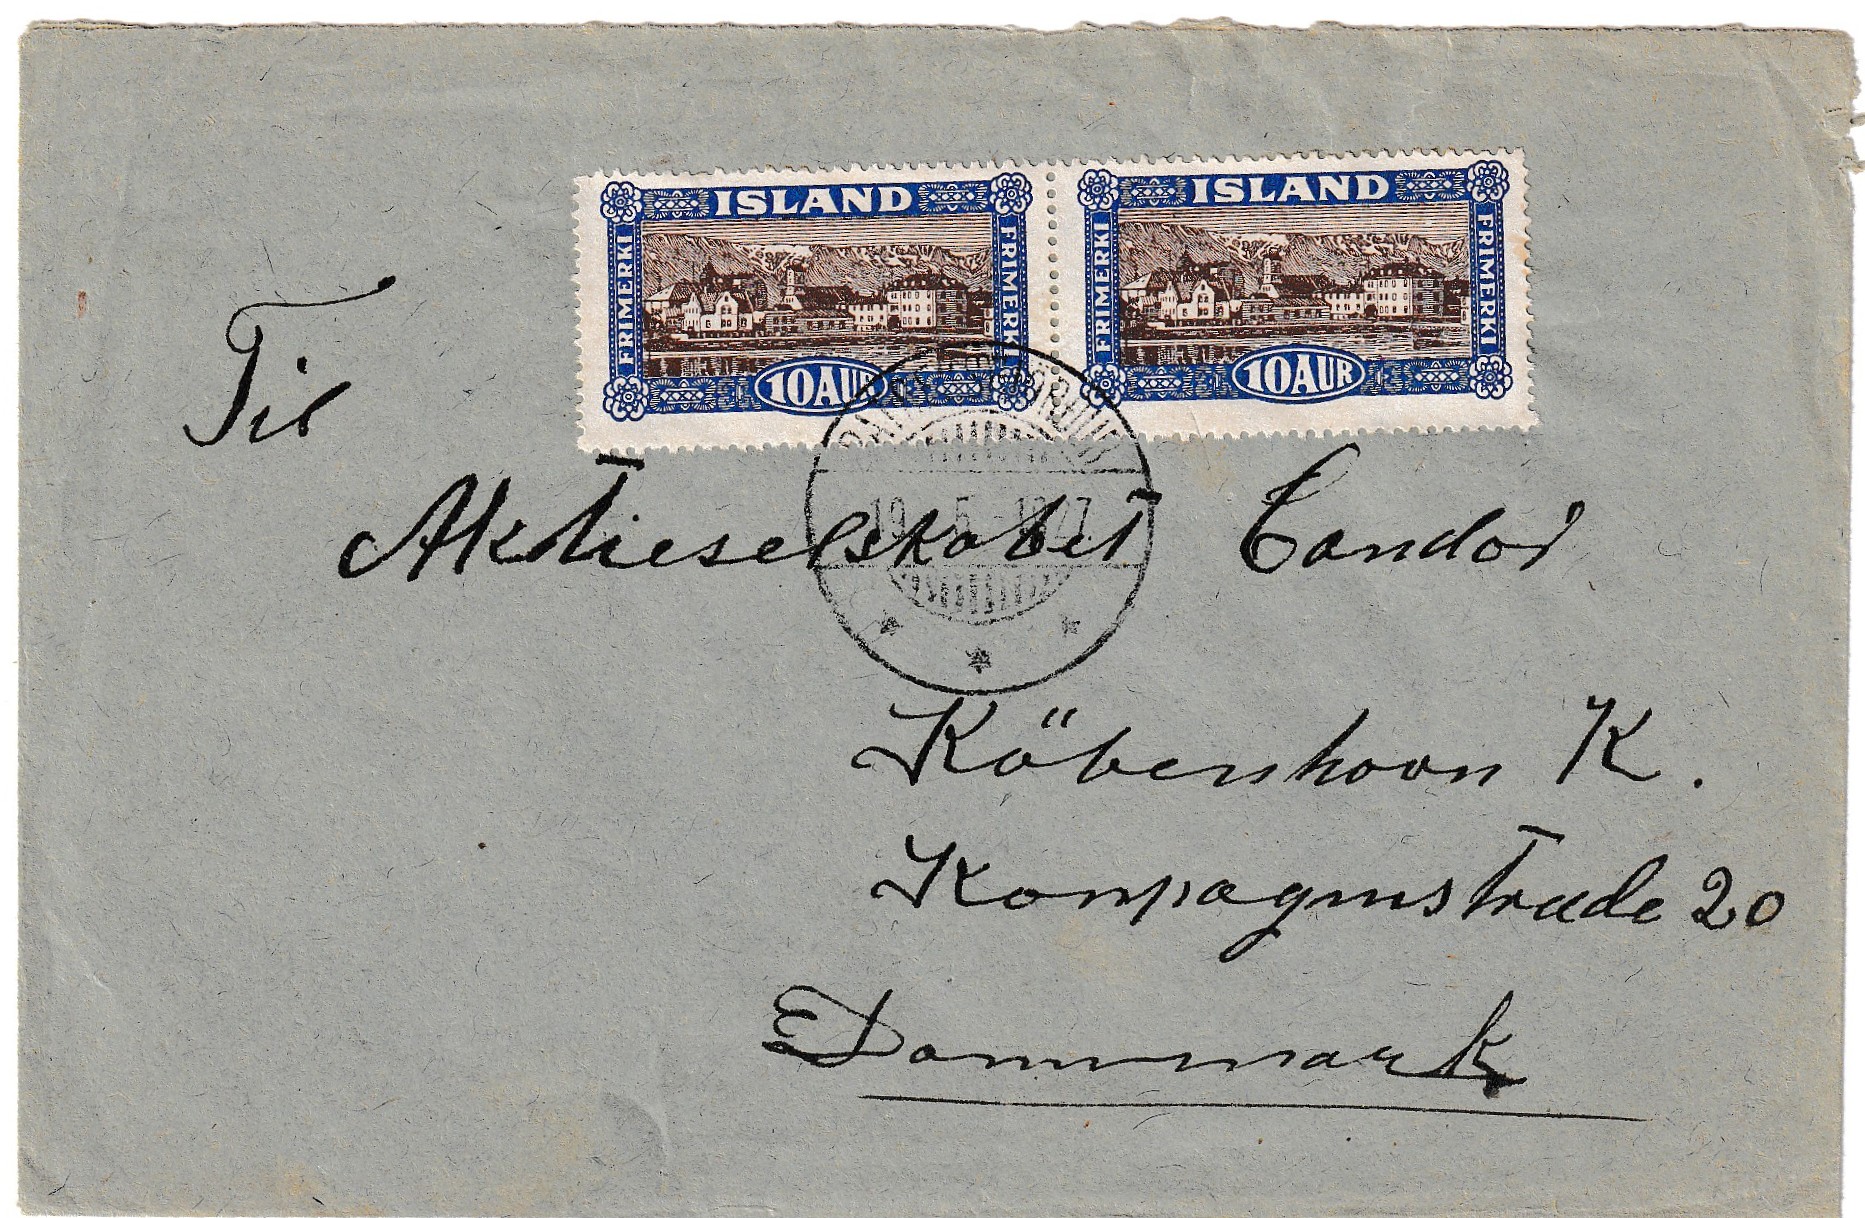 ISLAND
FRIMERKI
FRIMERKI
10 AUR
ISLAND
FRIMERKI
FRIMERKI
10 AUR
19 5 - 1927
Til
Aktieselskabet Candor
Köbenhavn K.
Kompagnistræde 20
Danmark